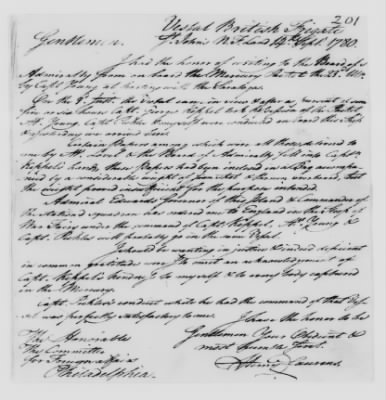 201
Vestal British Frigate
St. Johns N. F. Land 14th Sept. 1780.
Gentlemen.
I had the honor of writing to the Board of
Admiralty from on board the Mercury Packet the 23d
by Capt. Young
On the 3
six hours Capt. Keppel
Mr. Young, Capt. Pickles & myself were ordered on board this Ship
& yesterday we arrived here.
Certain Papers among which were all those directed to
me by Mr. Lovell & the Board of Admiralty fell into Capt.
Keppel's hands, these Papers had been inclosed in a Bag accompanied
by a considerable weight of Iron Shot & thrown overboard, but
the weight proved insufficient for the purpose intended.
Admiral Edwards Governor of this Island & Commander of
the stationed Squadron has ordered me to England in the Sloop of
War Fairy under the command of Capt. Keppel, Mr. Young &
Capt. Pickles will probably go in the same Vessel.
I should be wanting in justice & indeed deficient
in common gratitude were I to omit an acknowledgment of
Capt. Keppel's kindness to myself & to every body captured
in the Mercury.
Capt. Pickles's conduct while he had the command of that Vessel
was perfectly satisfactory to me.
I have the honor to be
Gentlemen Your Obedient &
most humble Servt.
Henry Laurens.
The Honorable
The Committee
for Foreign affairs
Philadelphia.